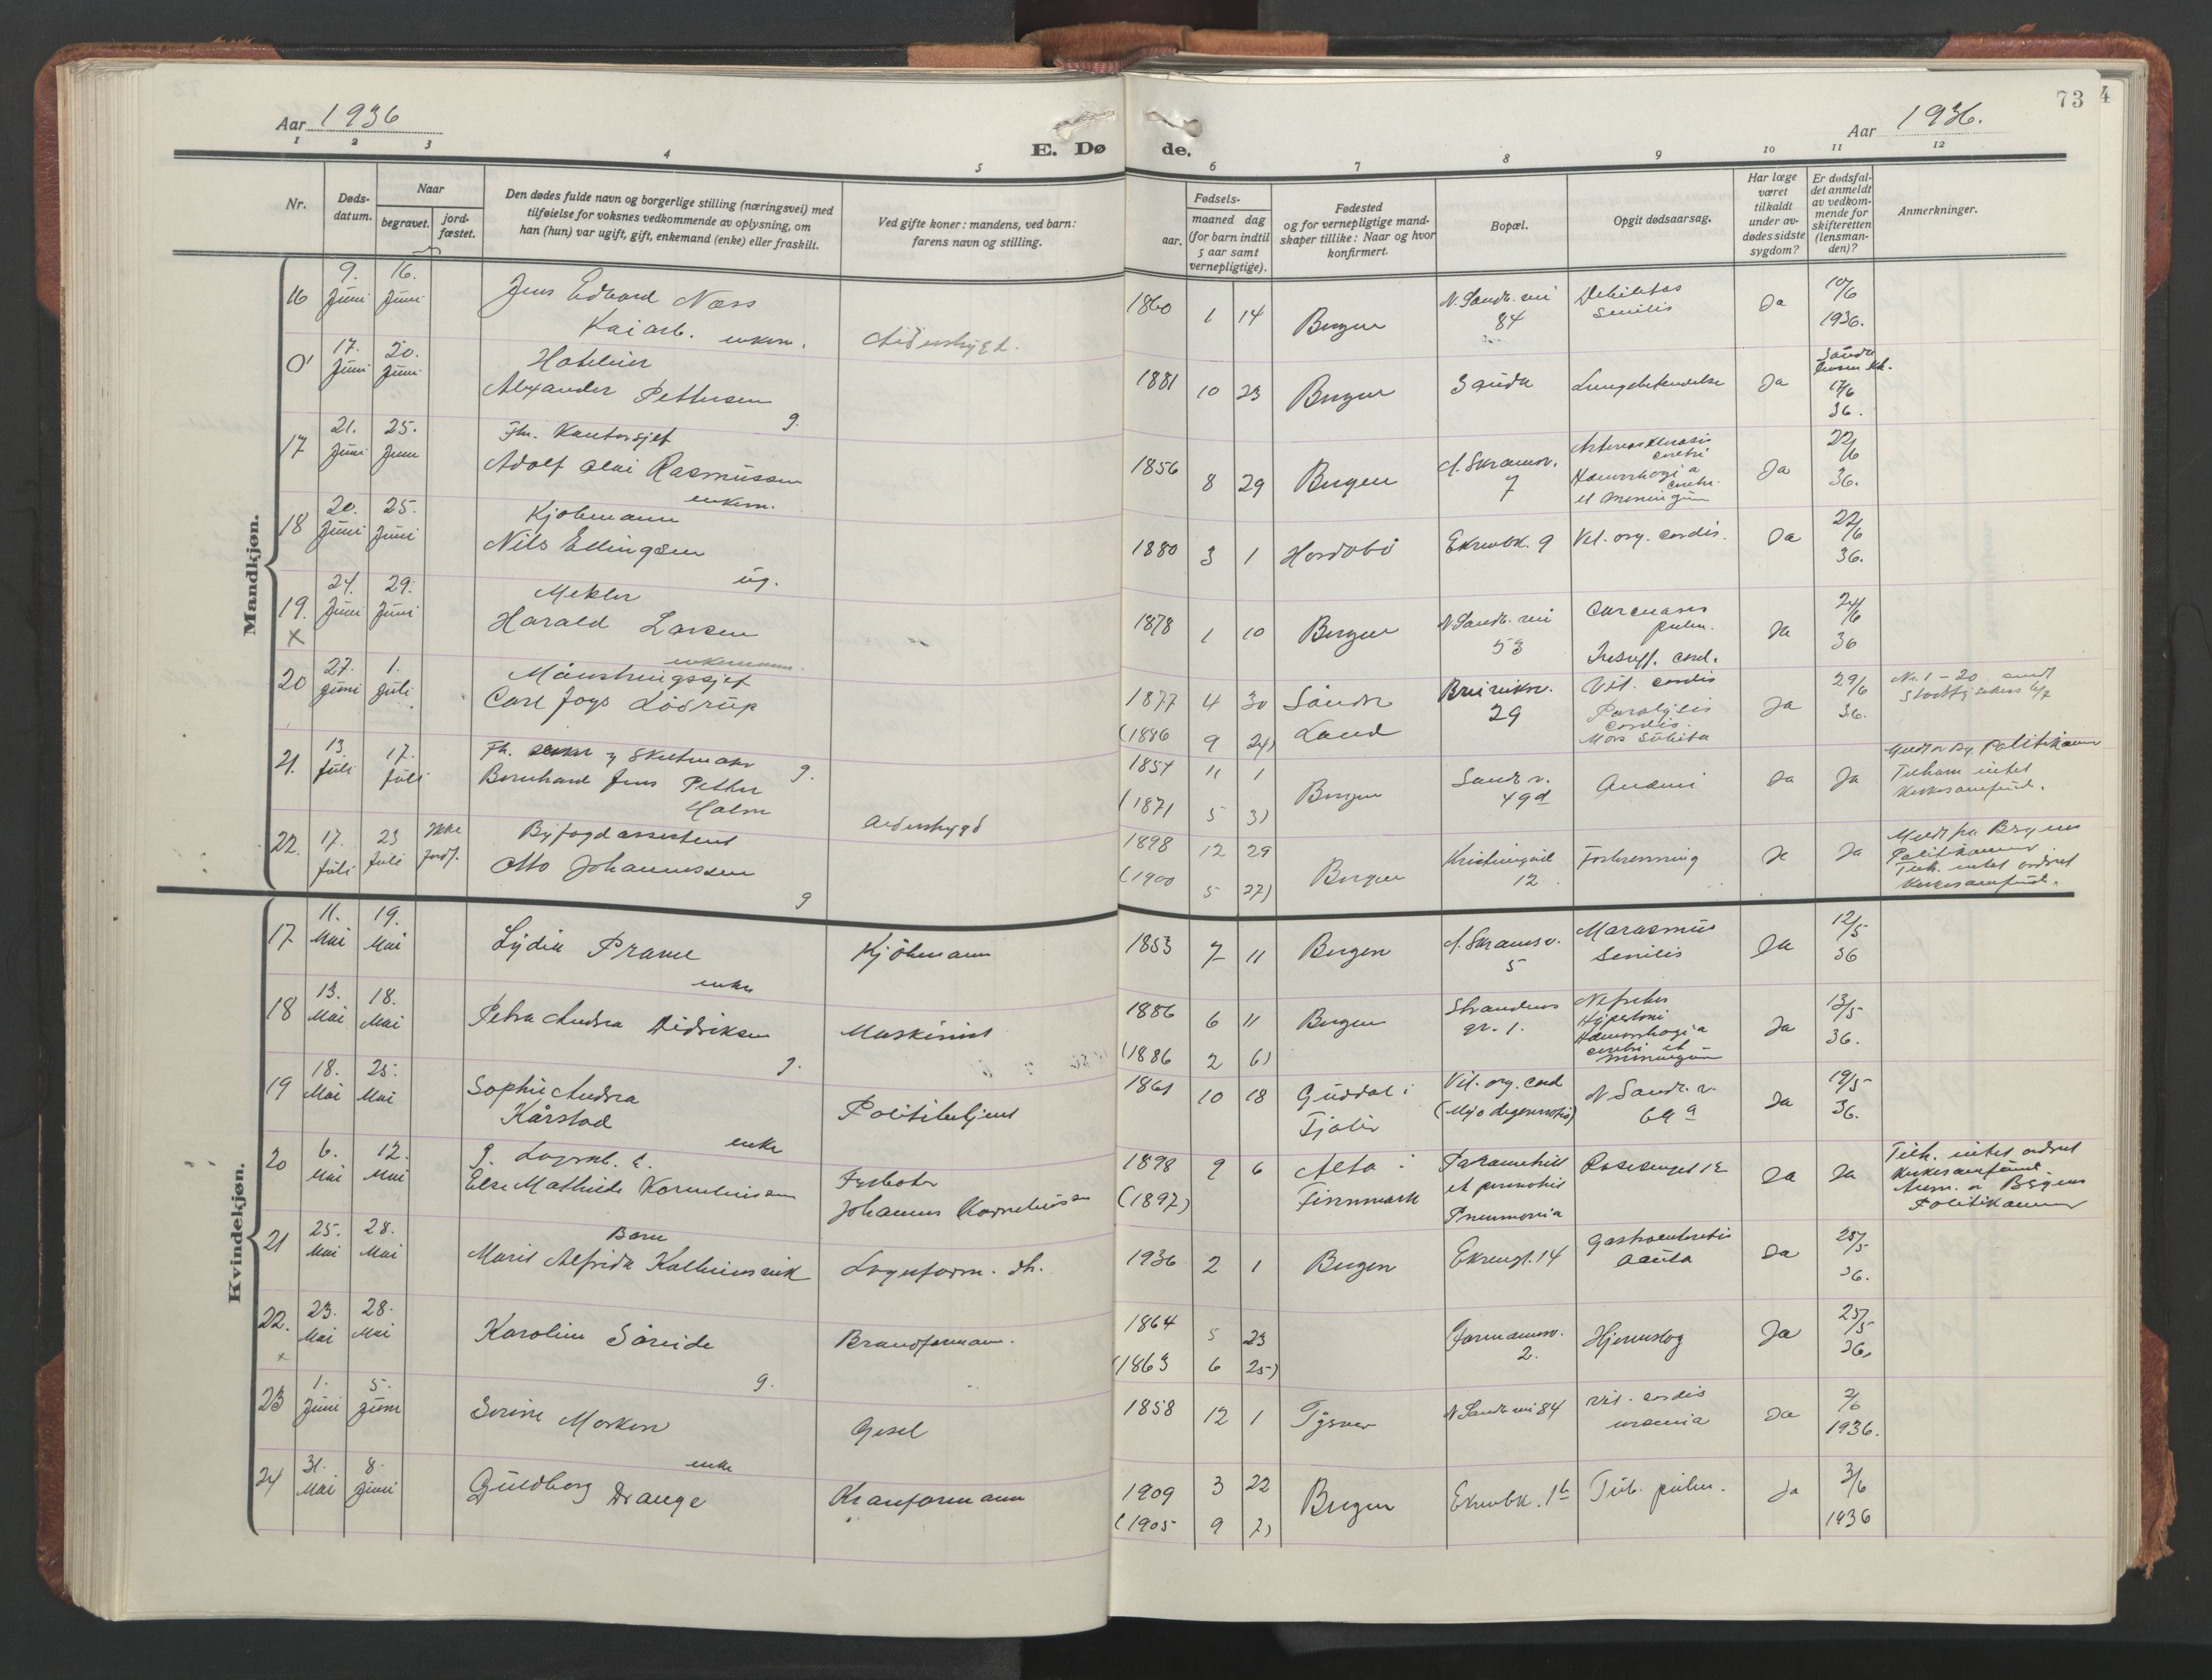 Aar 1936
E. Dø
de.
Aar 1936.
73
4
1 2 3 4 5 6 7 8 9 10 11 12
Nr.
Døds-
datum.
Naar
begravet.
jord-
fæstet.
Den dødes fulde navn og borgerlige stilling (næringsvei) med
tilføielse for voksnes vedkommende av oplysning, om
han (hun) var ugift, gift, enkemand (enke) eller fraskilt.
Ved gifte koner: mandens, ved barn:
farens navn og stilling.
Fødsels-
aar.
maaned dag
(for barn indtil
5 aar samt
vernepligtige).
Fødested
og for vernepligtige mand-
skaper tillike: Naar og hvor
konfirmert.
Bopæl.
Opgit dødsaarsag.
Har læge
været
tilkaldt
under av-
dødes sidste
sygdom?
Er dødsfal-
det anmeldt
av vedkom-
mende for
skifteretten
(lensman-
den)?
Anmerkninger.
Mandkjøn.
16
9. Juni
16. Juni
Jens Edvard Næss
Kaiarb. enkem.
Alderstrygd.
1860 1 14
Bergen
N. Sandv. vei
84
Debilitas
senilis
Ja
10/6
1936.
0'
17. Juni
20. Juni
Hoteleier
Alexander Pettersen
g.
1881 10 23
Bergen
Sauda
Lungebetendelse
Ja
17/6
36.
17
21. Juni
25. Juni
Fhr. Kontorsjef
Adolf Olai Rasmussen
enkem.
1856 8 29
Bergen
C. Skramsv.
7
Arteriosklerosis
cerebri
Hæmorrhagia
cerebri
et meningum
Ja
22/6
36.
18
20. Juni
25. Juni
Kjøbmann
Nils Ellingsen
ug.
1880 3 1
Hordabø
Ekrenbk. 9
Vit. org. cordis.
Ja
22/6
36.
19.
x
24. Juni
29. Juni
Mekler
Harald Larsen
enkemann.
1878 1 10
Bergen
N. Sandv. vei
53
pulm.
Insuff. cord.
Ja
24/6
36
20
27. Juni
1. Juli
Mønstringssjef
Carl Joys Lødrup
g.
1877 4 30
(1886 9 24)
Søndre
Land
29
Vit. cordis
Paralysis
cordis.
Mors subita
Ja
29/6
36.
No. 1-20 sendt
21.
13. Juli
17. Juli
Bernhard Jens Petter
Holm
Alderstrygd
1854 11 1
(1871 5 3)
Bergen
Sandv. v.
49d
Anæmi
Ja
Ja
Meldt av Bg. Politikamer
Tilhørte intet
kirkesamfund.
22.
17. Juli
23 Juli
Ikke
jordf.
Byfogdassistent
Otto Johannessen
g
1898 12 29
(1900 5 27)
Bergen
12.
Forbrenning
Ja
Ja
Meldt fra Bergens
Politikammer
Tilh. intet ordnet
kirkesamfund.
Kvindekjøn.
17
11. Mai
19. Mai
Lydia Prame
enke
Kjøbmann
1853 7 11
Bergen
C. Skramsv.
5
Marasmus
senilis
Ja
12/5
36
18
13. Mai
18. Mai
Petra Andrea Didriksen
g.
Maskinist
1886 6 11
(1886 2 6)
Bergen
gt. 1.
Nefritis
Hypertoni
Hæmorrhagia
cerebri et
meningum
Ja
13/5
36.
19
18. Mai
25. Mai
Sophie Andrea
Kårstad
enke
Politibetjent
1861 10 18
Guddal i
Fjaler
Vit. org. cord
(Myodegeneratio)
N. Sandv. v.
69a
Ja
19/5
36.
20
6. Mai
12. Mai
Else Mathilde Korneliussen
Fyrbøter
Johannes Korneliussen
1898 9 6
(1897)
Alta i
Finnmark
Parametritt
et peritonitis
Pneumonia
Ja
Ja
Tilh. intet ordnet
kirkesamfund.
Anm. av Bergens
Politikammer
21
25. Mai
28. Mai
Barn
Marit Alfrida Kalhelmsvik
Lagerform. dt.
1936 2 1
Bergen
Ekrengt. 14
Gastroenteritis
acuta
Ja
25/5
36.
22.
x
23. Mai
28. Mai
Karoline Søreide
g.
Brandformann.
1864 5 23
(1863 6 25)
Formannsv.
2.
Hjerneslag
Ja
25/5
36.
23
1. Juni
5. Juni
Serine Morken
enke
Gesel
1858 12 1
Tysvær
N. Sandv. vei 84
Vit. cordis
uræmia
Ja
2/6
1936.
24
31. Mai
8. Juni
Guldborg Drange
Kranformann
1909 3 22
(1905 9 7)
Bergen
Ekrenbk. 1b
Tub. pulm.
Ja
3/6
1936